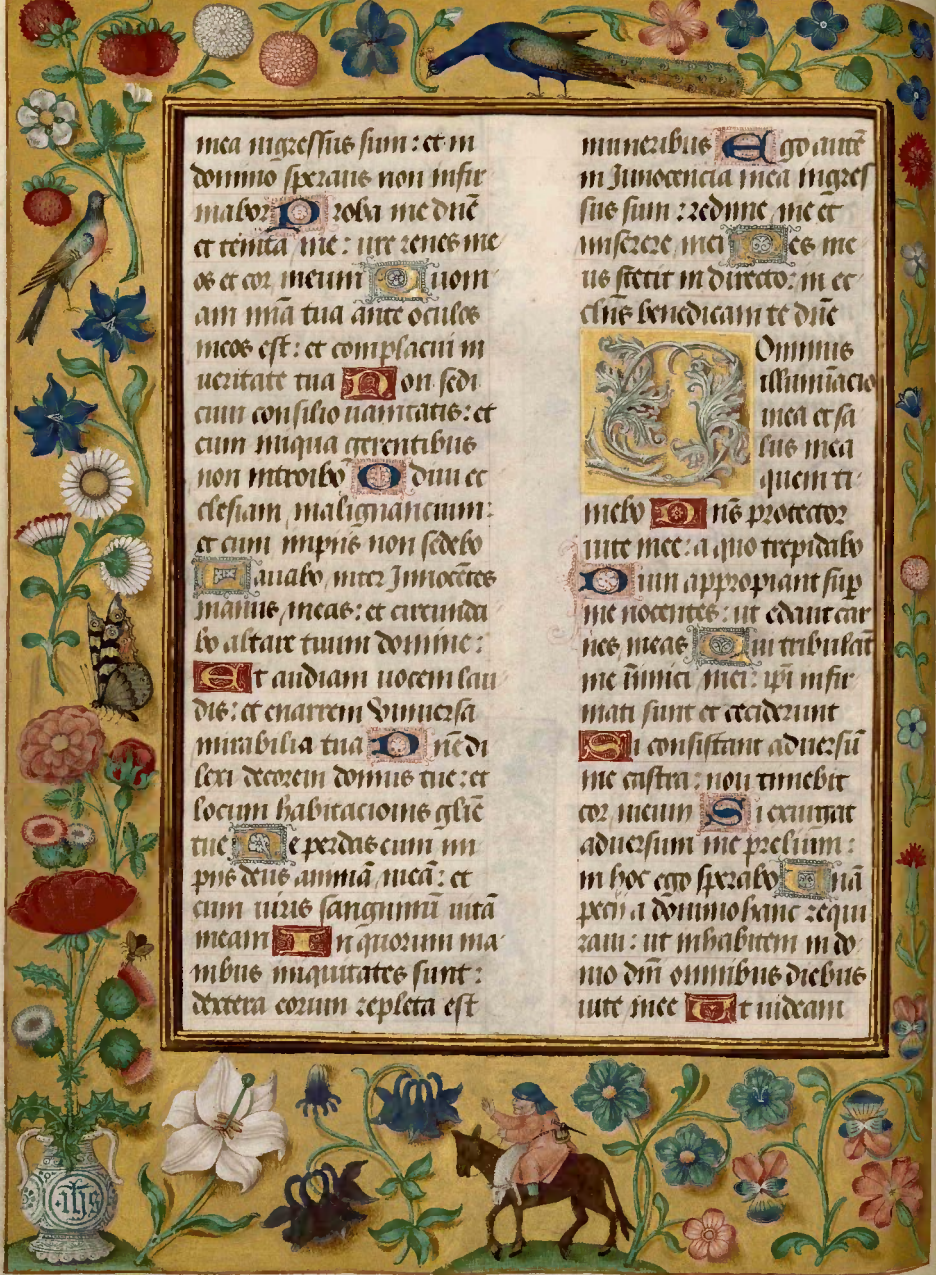 mea ingressus sum: et in
domino sperans non infir
mabor Proba me dn̄e
et tēnta me: ure renes me
os et cor meum Quom
am mīa tua ante oculos
meos est: et complacui in
veritate tua Non sedi
cum consilio vanitatis: et
cum iniqua gerentibus
non introibo Odivi ec
clesiam malignancium:
et cum impiis non sedebo
Lavabo inter Innocētes
manus meas: et circunda
bo altare tuum domine:
Et audiam vocem lau
dis: et enarrem Vniversa
mirabilia tua Dn̄e di
lexi decorem domus tue: et
locum habitacionis glīe
tue Ne perdas cum im
piis deus animā meā: et
cum viris sanguinū vitā
meam In quorum ma
nibus iniquitates sunt:
dextera eorum repleta est
muneribus Ego autē
in Innocencia mea ingres
sus sum: redime me et
miserere mei Pes me
us stetit in directo: in ec
clīis benedicam te dn̄e
Dominus
illuminacio
mea et sa
lus mea
quem ti
mebo Dn̄s protector
vite mee: a quo trepidabo
Dum appropiant sup̄
me nocentes: ut edant car
nes meas Qui tribulāt
me inimici mei: ip̄i infir
mati sunt et ceciderunt
Si consistant adversū
me castra: non timebit
cor meum Si exurgat
adversum me prelium:
in hoc ego sperabo Unā
pecii a domino hanc requi
ram: ut inhabitem in do
mo dn̄i omnibus diebus
vite mee Ut videam
ihs